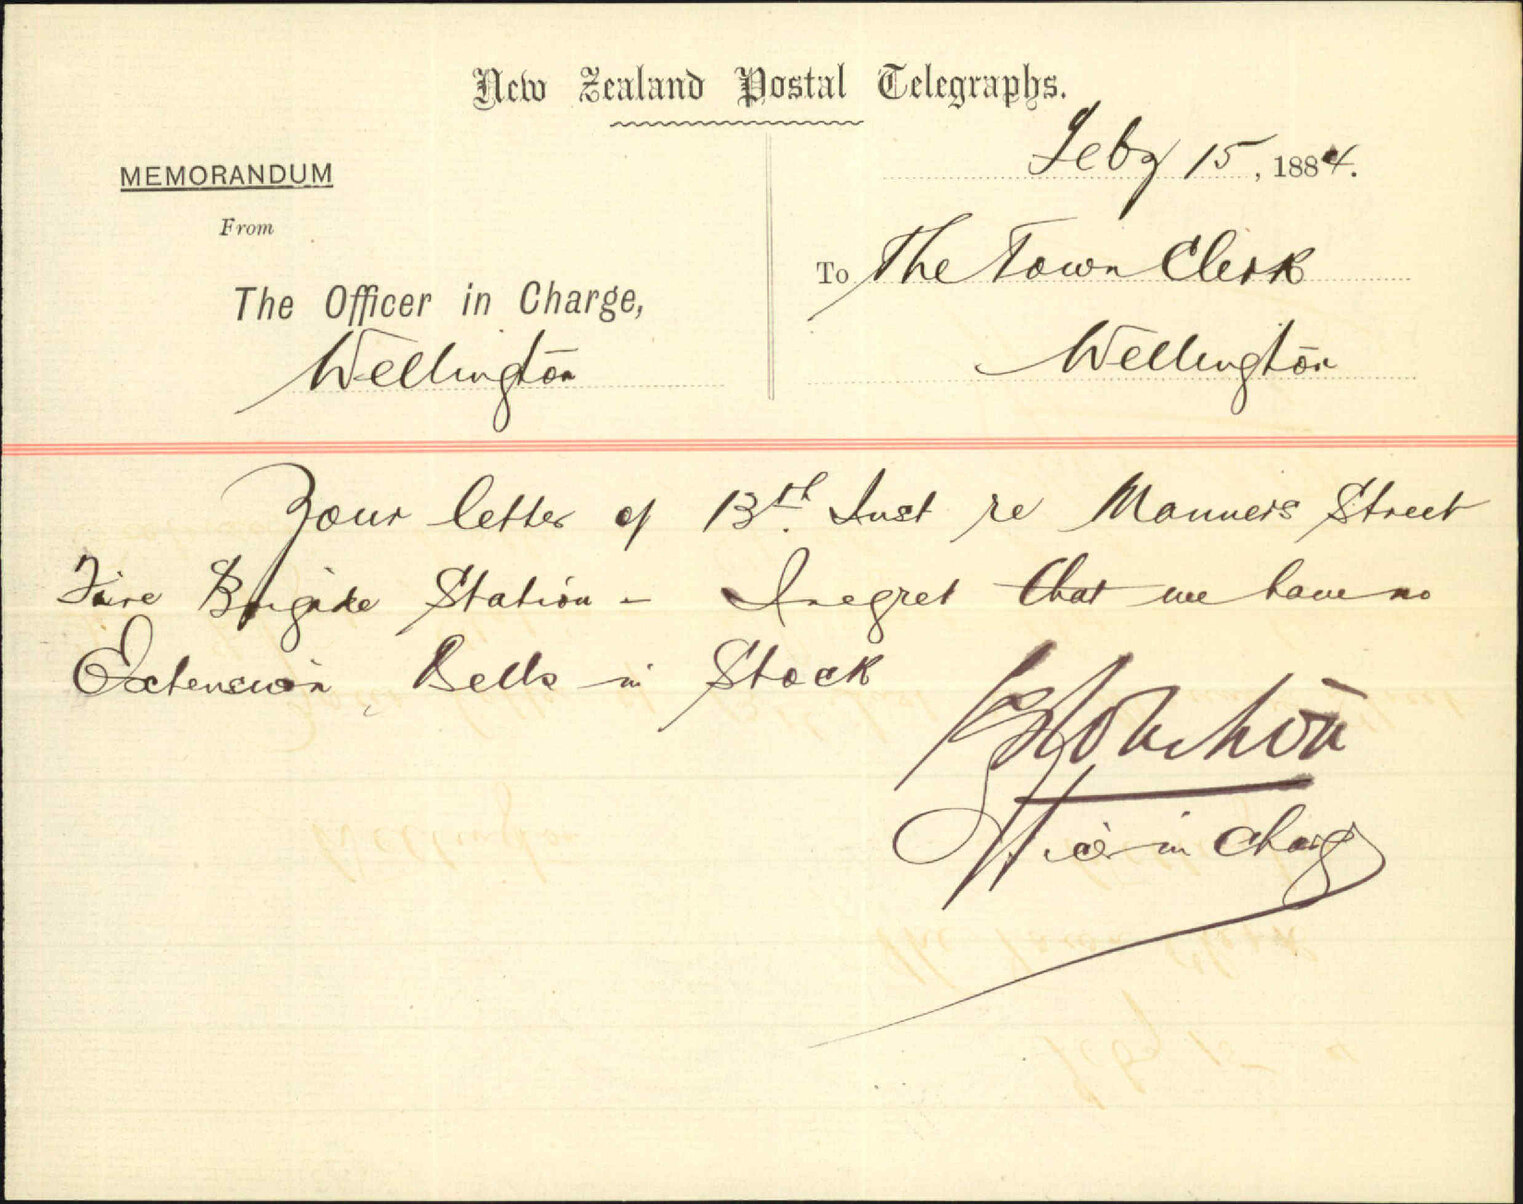 New Zealand Postal Telegraphs.
Feby 15, 1884.
MEMORANDUM
From
The Officer in Charge,
Wellington
To The Town Clerk
Wellington
Your letter of 13th Inst re Manners Street
Fire Brigade Station - I regret that we have no
Extension Bells in Stock
Officer in Charge